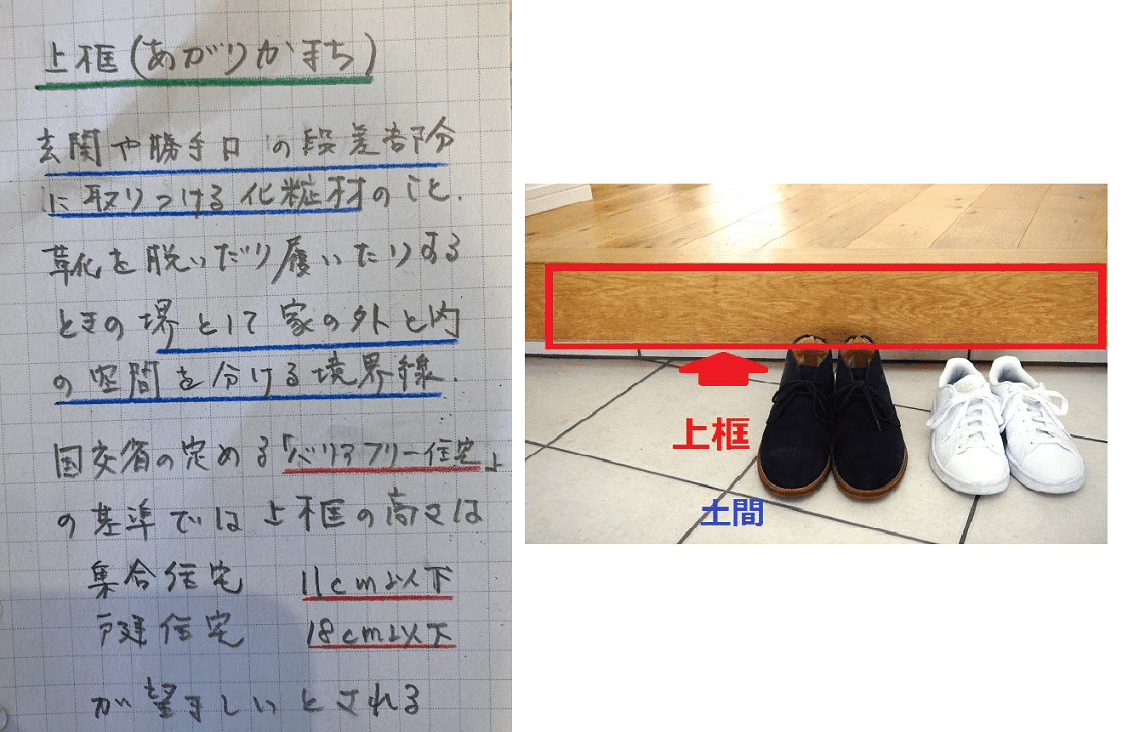 上框(あがりかまち)
玄関や勝手口の段差部分
に取りつける化粧材のこと.
靴を脱いだり履いたりする
ときの堺として家の外と内
の空間を分ける境界線.
国交省の定める「バリアフリー住宅」
の基準では上框の高さは
集合住宅 11cm以下
戸建住宅 18cm以下
が望ましいとされる
上框
土間